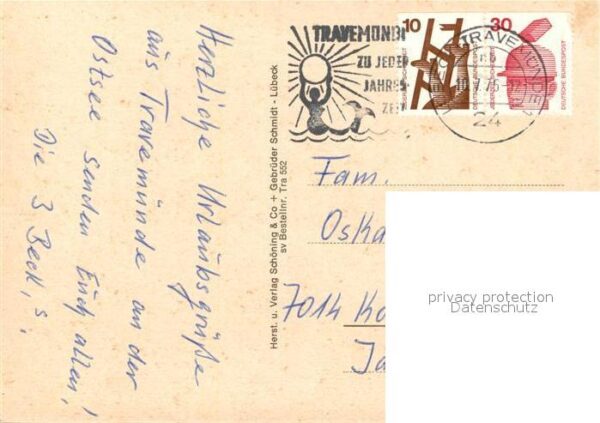 Herzliche Urlaubsgrüße
aus Travemünde an der
Ostsee senden Euch allen!
Die 3 Beck,s.
Herst. u. Verlag Schöning & Co + Gebrüder Schmidt - Lübeck
sv Bestellnr. Tra 552
TRAVEMÜND
ZU JEDER
JAHRES-
ZEIT
10
30
DEUTSCHE BUNDESPOST
TRAVEMÜNDE
24
Fam.
Oska
7014 Ko
Ja
privacy protection
Datenschutz